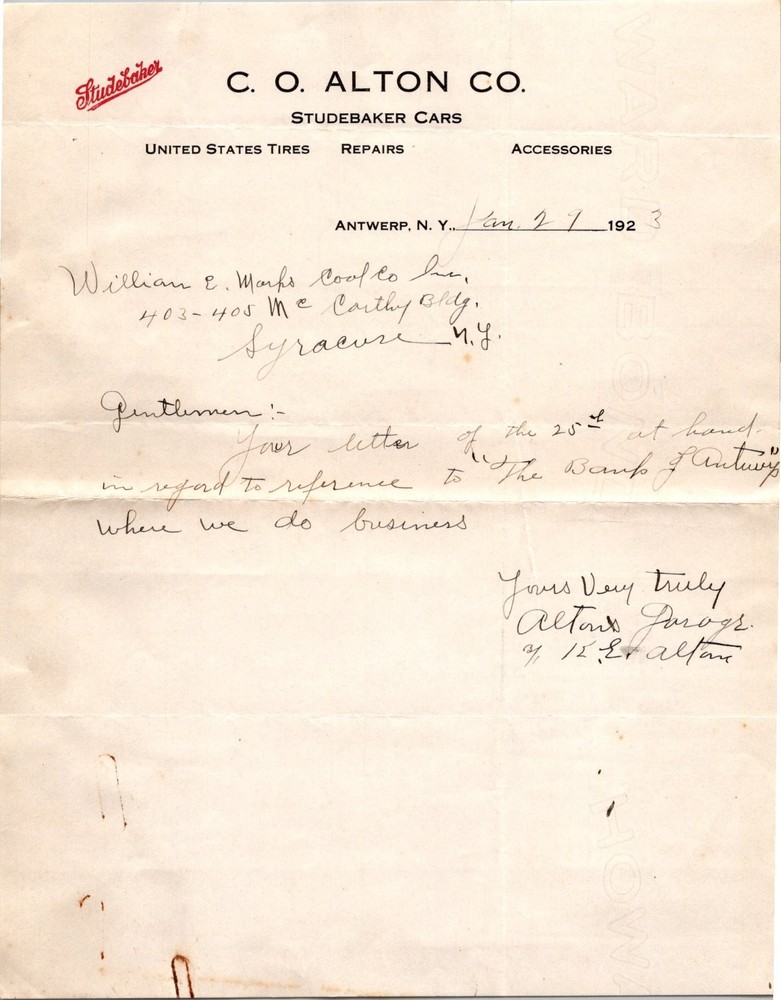 Studebaker
C. O. ALTON CO.
STUDEBAKER CARS
UNITED STATES TIRES REPAIRS ACCESSORIES
ANTWERP, N. Y., Jan. 29 1923
William E. Marks Coal Co Inc,
403-405 Mc Carthy Bldg.
Syracuse N.Y.
Gentlemen:-
Your letter of the 25th at hand.
in regard to reference to "The Bank of Antwerp"
where we do business
Yours Very truly
Altons Garage.
K.E. Alton
WARE BON
HOWA